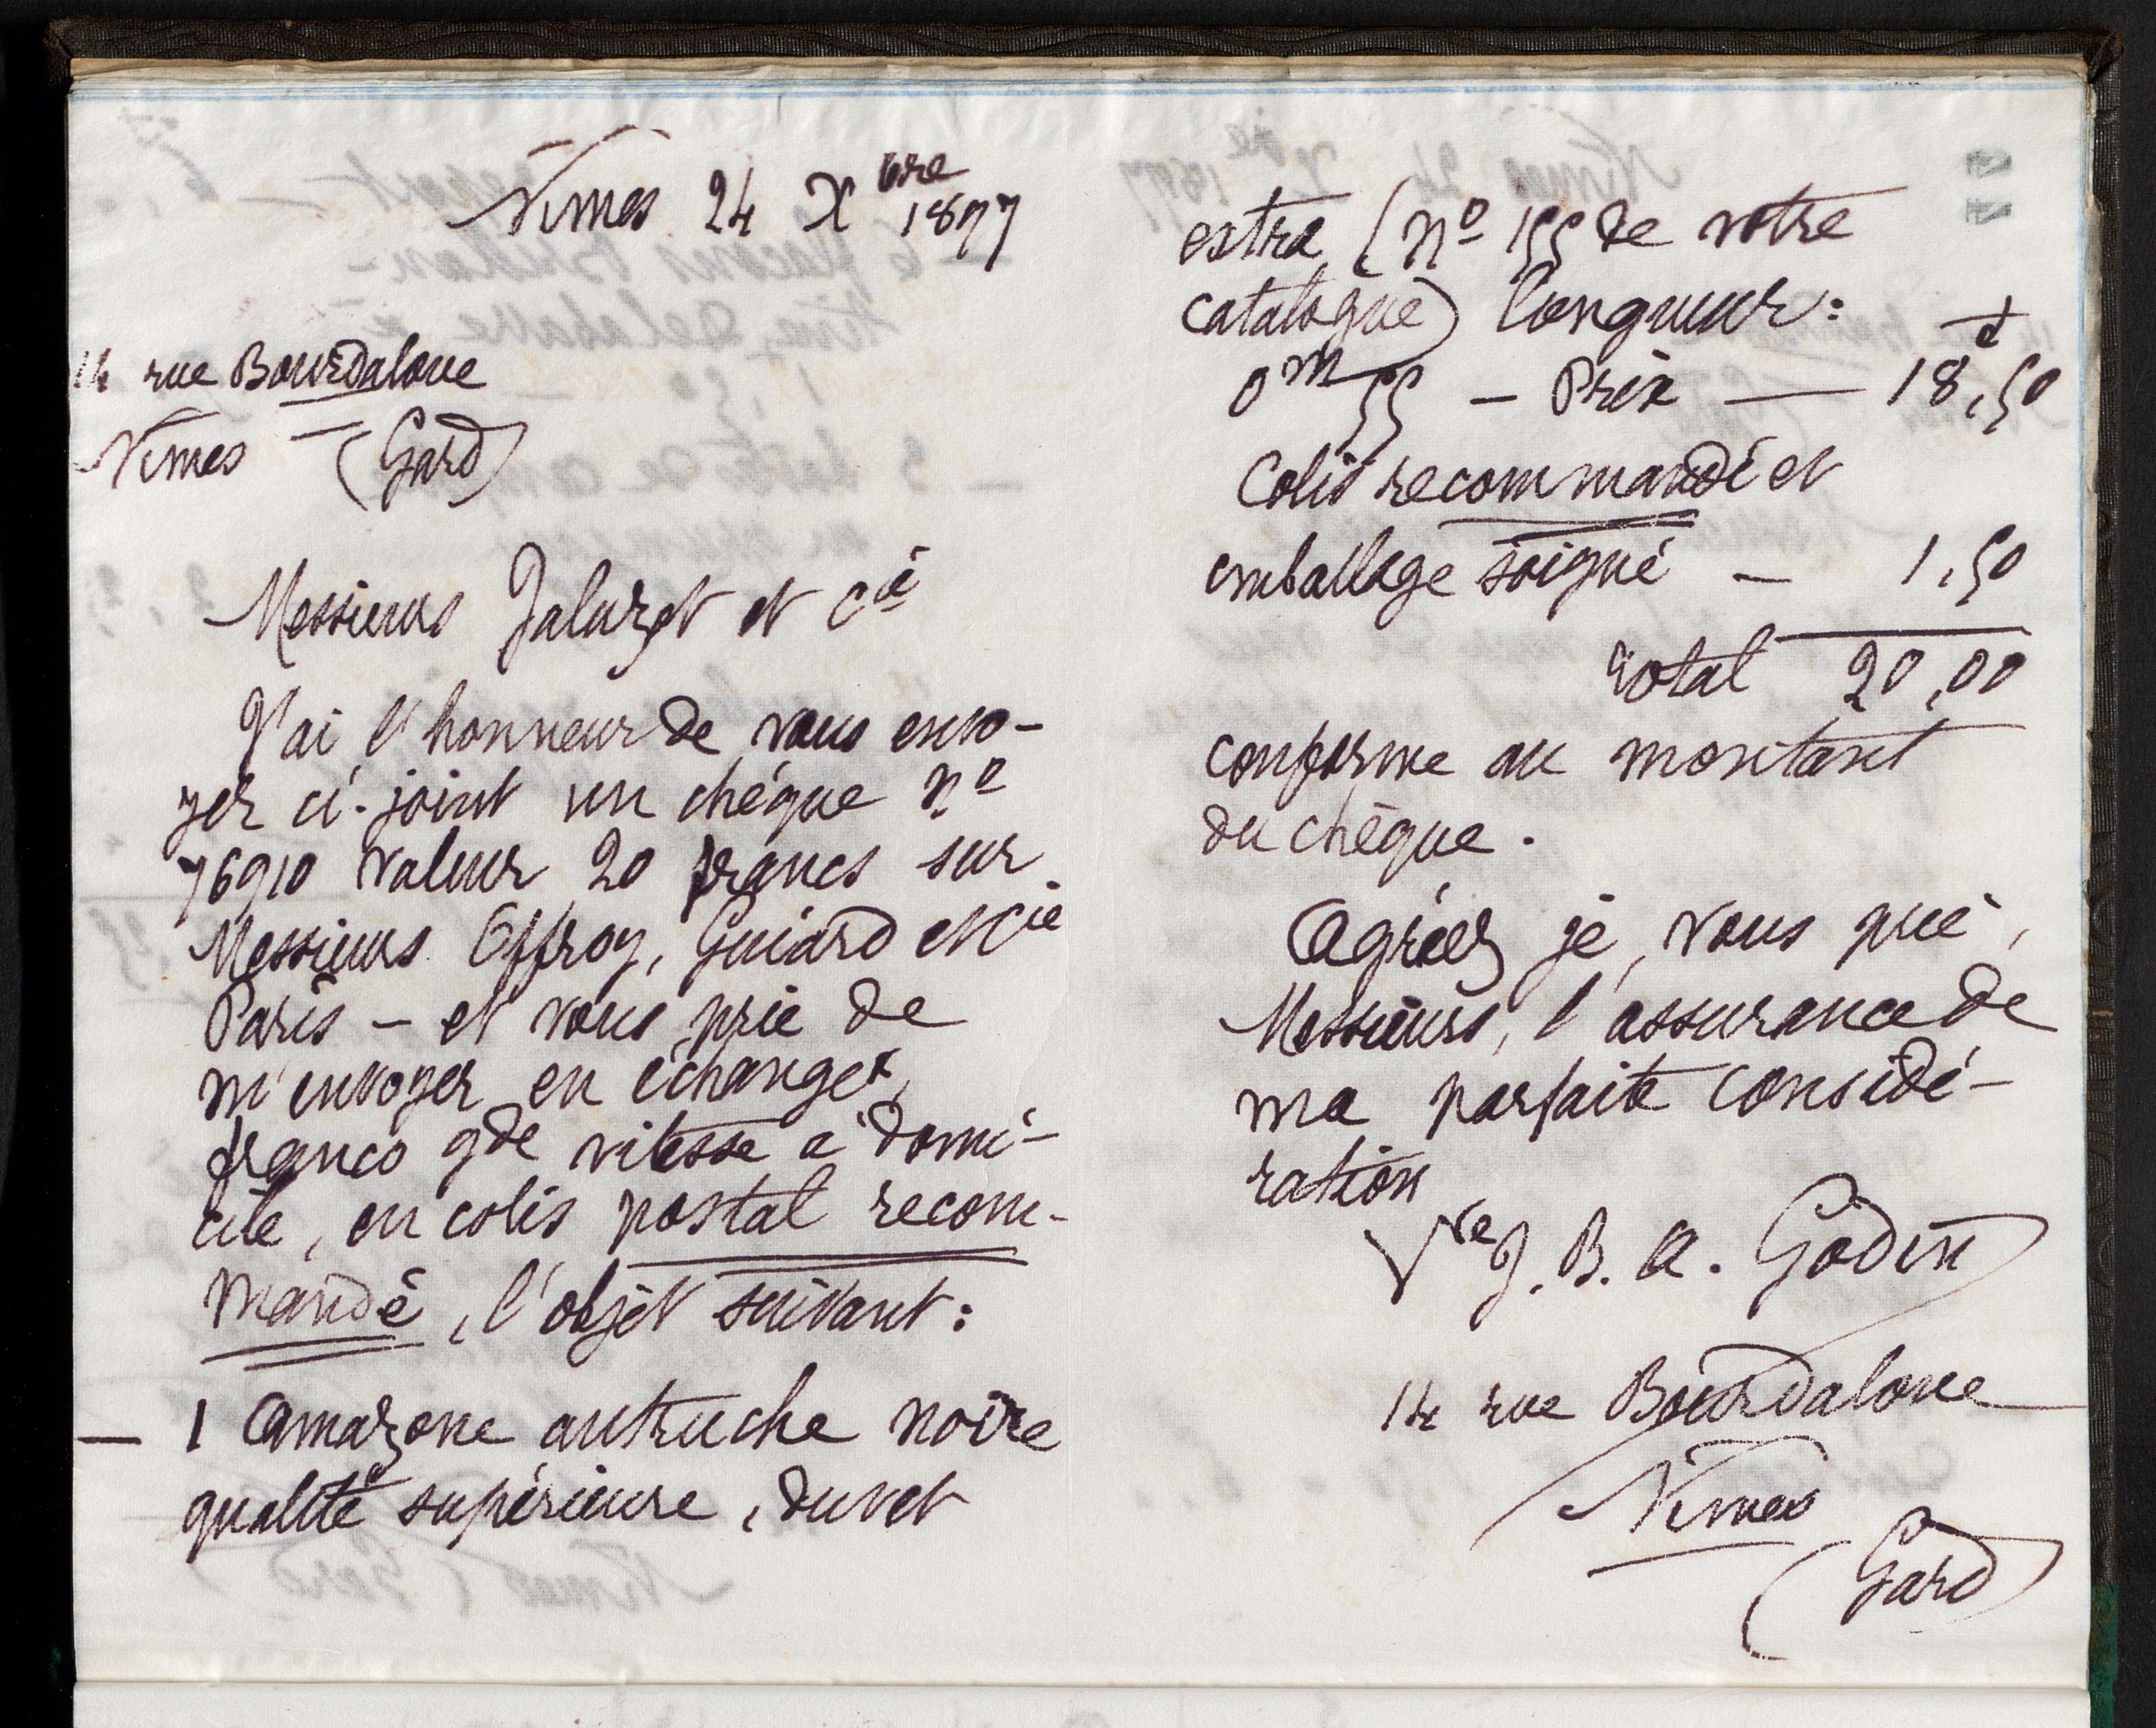 Nîmes 24 Xbre 1897
14 rue Bourdaloue
Nîmes (Gard)
Messieurs Jaluzot et Cie
J'ai l'honneur de vous envo-
yer ci-joint un chèque no
76910 valeur 20 francs sur
Messieurs Offroy, Guiard et Cie
Paris – et vous prie de
m'envoyer en échange,
franco gde vitesse à domi-
cile, en colis postal recom-
mandé, l'objet suivant :
— 1 Amazone autruche noire
qualité supérieure, duvet
extra (no 155 de votre
catalogue) longueur :
0m55 – Prix — 18,50
Colis recommandé et
emballage soigné – 1,50
Total 20,00
conforme au montant
du chèque.
Agréez je vous prie,
Messieurs, l'assurance de
ma parfaite considé-
ration
Vve J. B. A. Godin
14 rue Bourdaloue
Nîmes
(Gard)